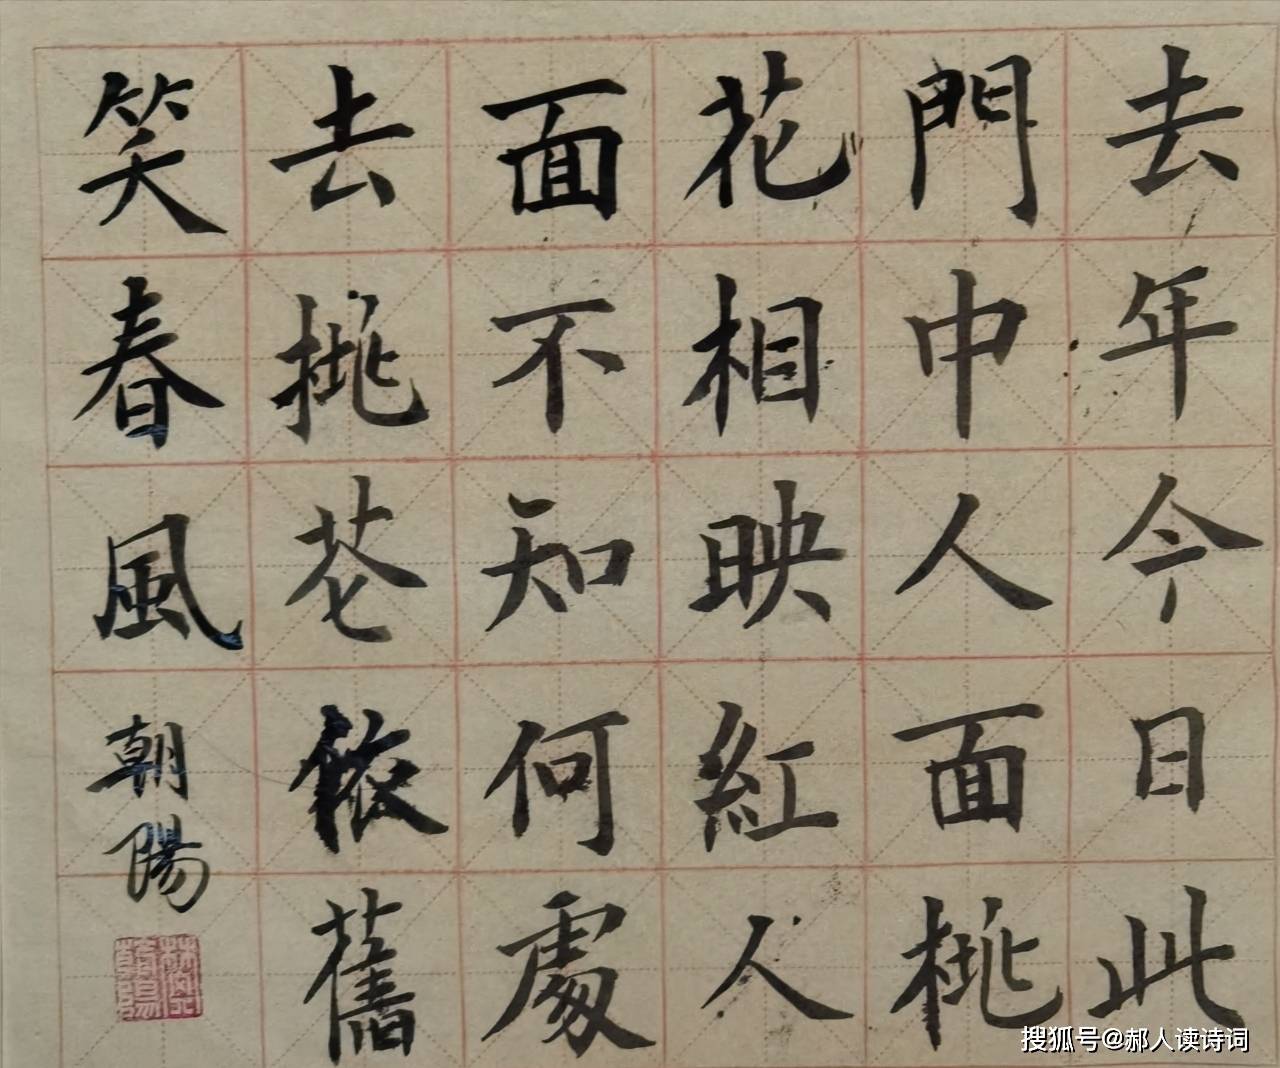 去年今日此
門中人面桃
花相映紅人
面不知何處
去桃花依舊
笑春風朝陽
搜狐号@郝人读诗词